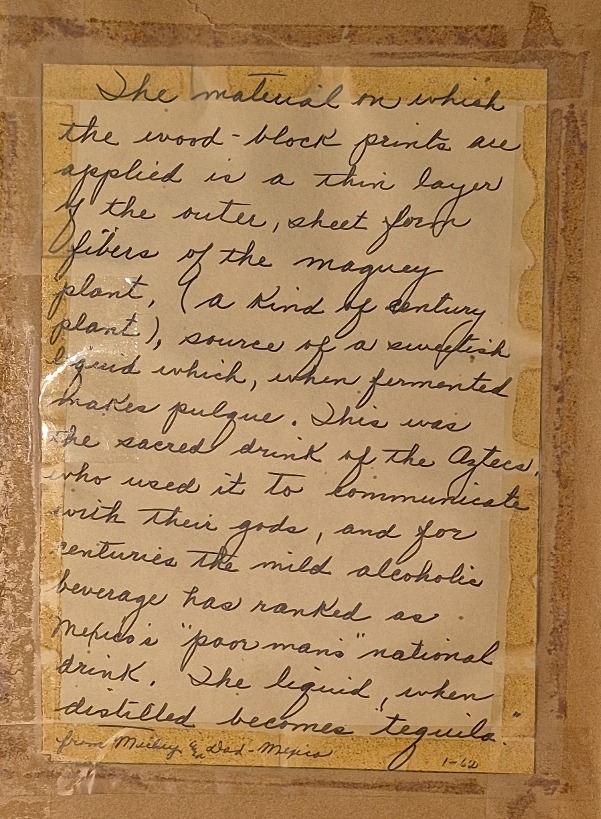 The material on which
the wood-block prints are
applied is a thin layer
of the outer, sheet form
fibers of the maguey
plant, (a kind of century
plant), source of a sweetish
liquid which, when fermented
makes pulque. This was
the sacred drink of the Aztecs,
who used it to communicate
with their gods, and for
centuries the mild alcoholic
beverage has ranked as
Mexico's "poor man's" national
drink. The liquid, when
distilled becomes "tequila."
from & Dad - Mexico
1-62